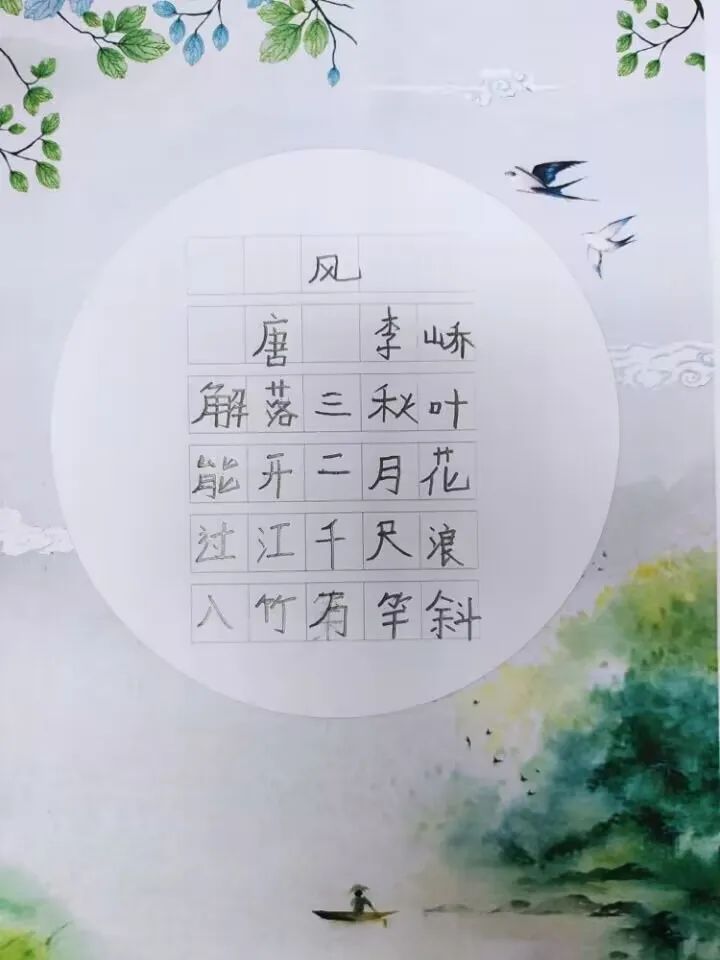 风
唐 李峤
解落三秋叶
能开二月花
过江千尺浪
入竹万竿斜